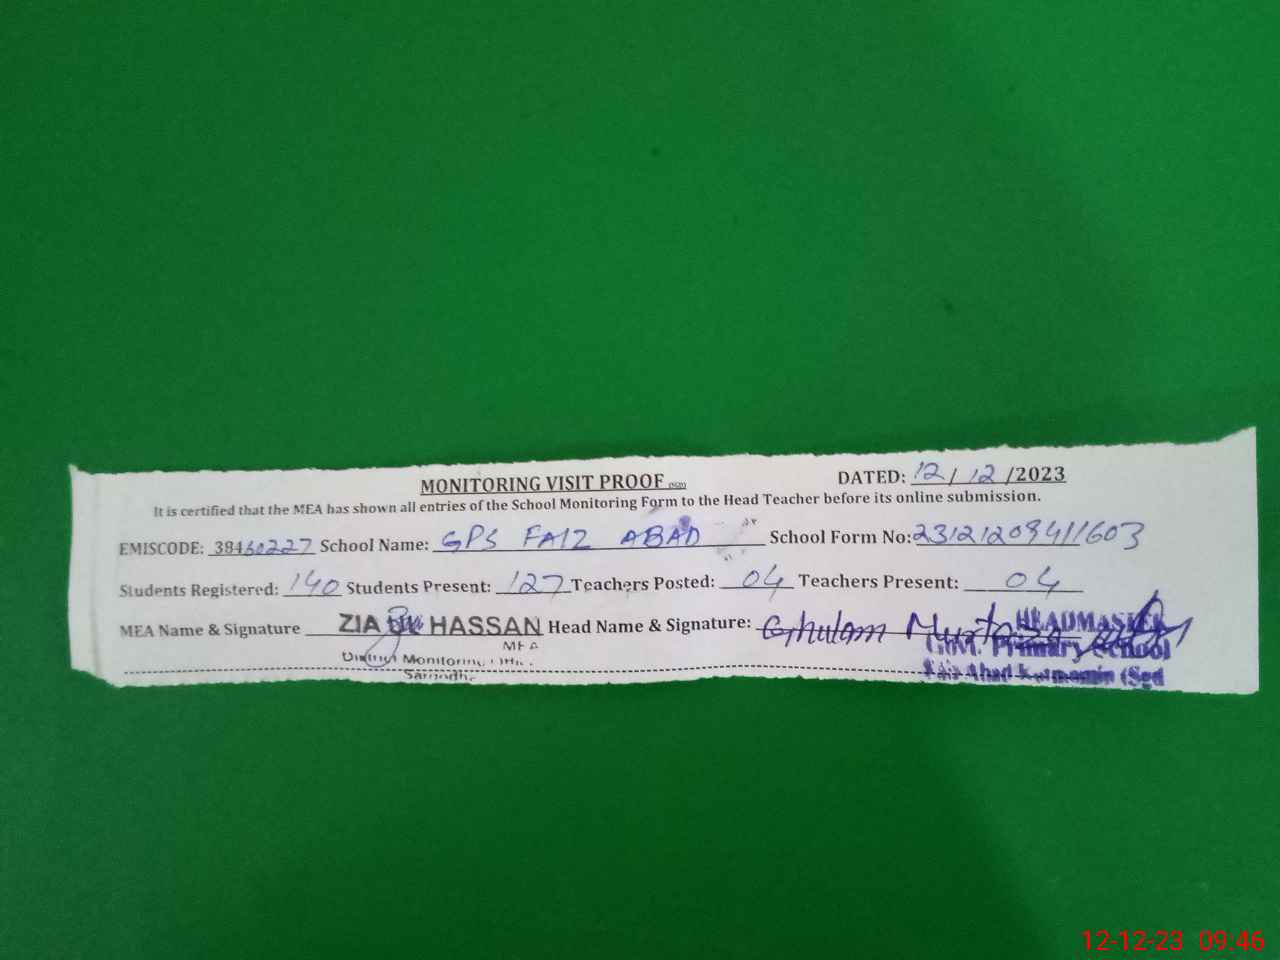 MONITORING VISIT PROOF (SGD) DATED: 12/12/2023
It is certified that the MEA has shown all entries of the School Monitoring Form to the Head Teacher before its online submission.
EMISCODE: 38460227 School Name: GPS FAIZ ABAD School Form No: 23121209411603
Students Registered: 140 Students Present: 127 Teachers Posted: 04 Teachers Present: 04
MEA Name & Signature ZIA UL HASSAN Head Name & Signature: Ghulam Murtaza HEADMASTER
MEA Govt. Primary School
District Monitoring Faiz Abad Kotmomin (Sgd
Sargodha
12-12-23 09:46